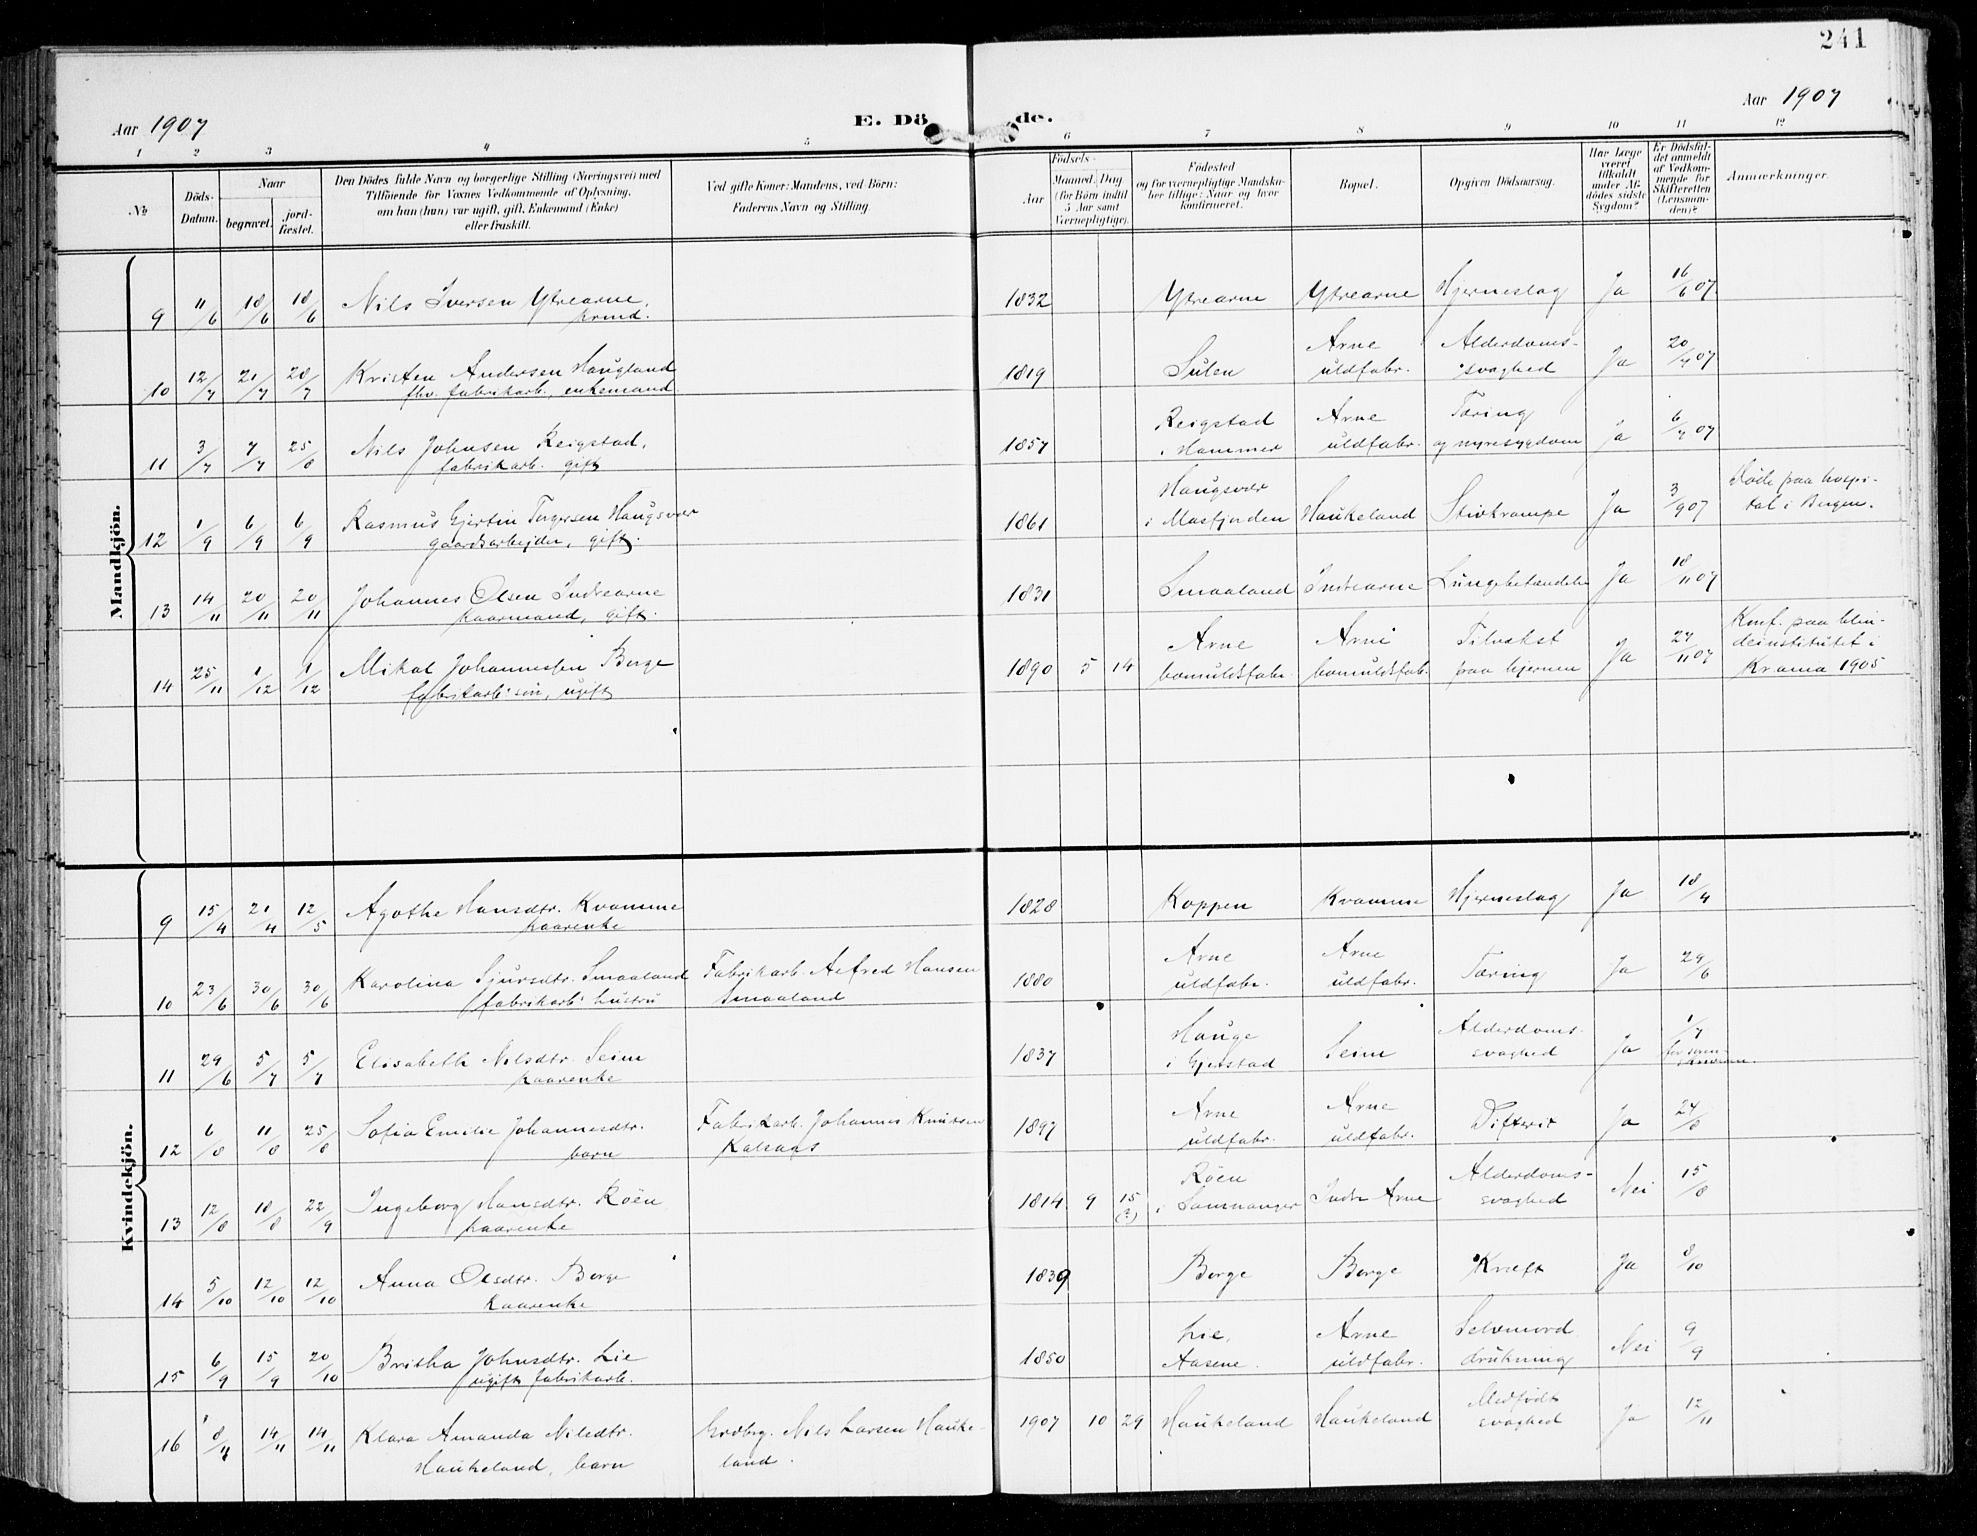 241
Aar 1907
E. Dö
de.
Aar 1907
1 2 3 4 5 6 7 8 9 10 11 12
№
Döds-
Datum.
Naar
begravet.
jord-
fæstet.
Den Dödes fulde Navn og borgerlige Stilling (Næringsvei) med
Tilföiende for Voxnes Vedkommende af Oplysning,
om han (hun) var ugift, gift, Enkemand (Enke)
eller fraskilt.
Ved gifte Koner: Mandens, ved Börn:
Faderens Navn og Stilling.
Födsels-
Aar
Maaned. Dag
(for Börn indtil
5 Aar samt
Værnepligtige).
Födested
og for værnepligtige Mandska-
ber tillige: Naar og hvor
konfirmeret.
Bopæl.
Opgiven Dödsaarsag.
Har Læge
været
tilkaldt
under Af-
dödes sidste
Sygdom?
Er Dödsfal-
det anmeldt
af Vedkom-
mende for
Skifteretten
(Lensman-
den)?
Anmærkninger.
Mandkjön.
9 11/6 18/6 18/6 Nils Iversen Ytrearne, 1832 Ytrearne Ytrearne Hjerneslag Ja 16/6 07
10 12/7 21/7 28/7 Kristen Andersen Haugland
fhv. fabrikarb., enkemand
1819 Sulen Arne
uldfabr.
Alderdoms-
svaghed
Ja 20/7 07
11 3/7 7/7 25/8 Nils Johnsen Reigstad,
fabrikarb. gift
1857 Reigstad
i Hammer
Arne
uldfabr.
Tæring
og nyresygdom
Ja 6/7 07
12 1/9 6/9 6/9 Rasmus Gjertin Torgersen Haugsvær
gaardsarbejder, gift.
1861 Haugsvær
i Masfjorden
Haukeland Stivkrampe Ja 3/9 07
Døde paa hospi-
tal i Bergen.
13 14/11 20/11 20/11 Johannes Olsen Indrearne
kaarmand, gift.
1831 Smaaland Indrearne Lungebetændelse Ja 18/11 07
14 25/11 1/12 1/12 Mikal Johannessen Borge
fabrikarb.' søn, ugift
1890 5 14 Arne
bomuldsfabr.
Arne
bomuldsfab.
Tilvekst
paa hjernen
Ja 27/11 07
Konf. paa blin-
deinstitutet i
Krania 1905
Kvindekjön.
9 15/4 21/4 12/5 Agothe Hansdtr. Kvamme
kaarenke
1828 Koppen Kvamme Hjerneslag Ja 18/4
10 23/6 30/6 30/6 Karolina Sjursdtr. Smaaland
fabrikarb.' hustru
Fabrikarb. Alfred Hansen
Smaaland
1880 Arne
uldfabr.
Arne
uldfabr.
Tæring Ja 29/6
11 29/6 5/7 5/7 Elisabeth Nilsdtr. Seim
kaarenke
1837 Hauge
i Gjerstad
Seim Alderdoms-
svaghed
Ja 1/7
12 6/8 11/8 25/8 Sofia Emilie Johannesdtr.
barn
Fabrikarb. Johannes Knutsen
Kalsaas
1897 Arne
uldfabr.
Arne
uldfabr.
Difterit Ja 24/8
13 12/8 18/8 22/9 Ingeborg Hansdtr. Röen
kaarenke
1814 9 15
(?)
Röen
i Samnanger
Indre Arne Alderdoms-
svaghed
Nei 15/8
14 5/10 12/10 12/10 Anna Olsdtr. Borge
kaarenke
1839 Borge Borge Kræft Ja 8/10
15 6/9 15/9 20/10 Britha Johnsdtr. Lie
ugift fabrikarb.
1850 Lie,
Aasene.
Arne
uldfabr.
Selvmord
drukning
Nei 9/9
16 8/11 14/11 14/11 Klara Amanda Nilsdtr.
Haukeland, barn
Grdbrg. Nils Larsen Hauke-
land.
1907 10 29 Haukeland Haukeland Medfödt
svaghed
Ja 12/11